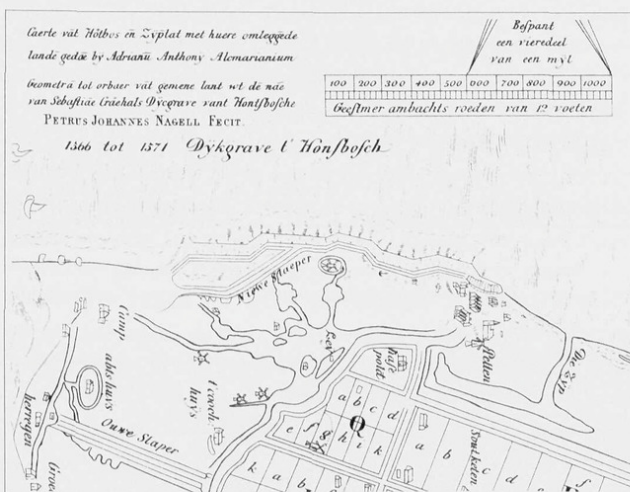 Caerte vāt Hōtbos en Zyplat met huere omleggede
lande gedāe by Adrianū Anthony Alcmarianium
Geometrā tot orbaer vāt gemene lant wt de nāe
van Sebastiāe Crāehals Dycgrave vant Hontsbosche
PETRUS JOHANNES NAGELL FECIT.
1566 tot 1571 Dÿkgrave t' Honsbosch
Bespant
een vieredeel
van een myl
100 200 300 400 500 600 700 800 900 1000
Geestmer ambachts roeden van 12 voeten
Niewe Slaeper
Camp
abts huys
herregen
Groe
Ouwe Slaper
t vogele
huys
Ley
hase
polet
Petten
De Zyp
Q
a b c d
e f g h i k
k a b
a b c d
f